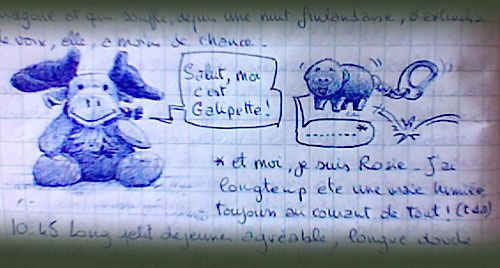 et qui souffle, depuis une nuit finlandaise,
de voix, elle, a moins de chance.
Salut, moi
c'est
Galipette!
............ *
* et moi, je suis Rosie - J'ai
longtemp été une vraie lumière,
toujours au courant de tout!
10:45 Long petit déjeuner agréable, longue douche